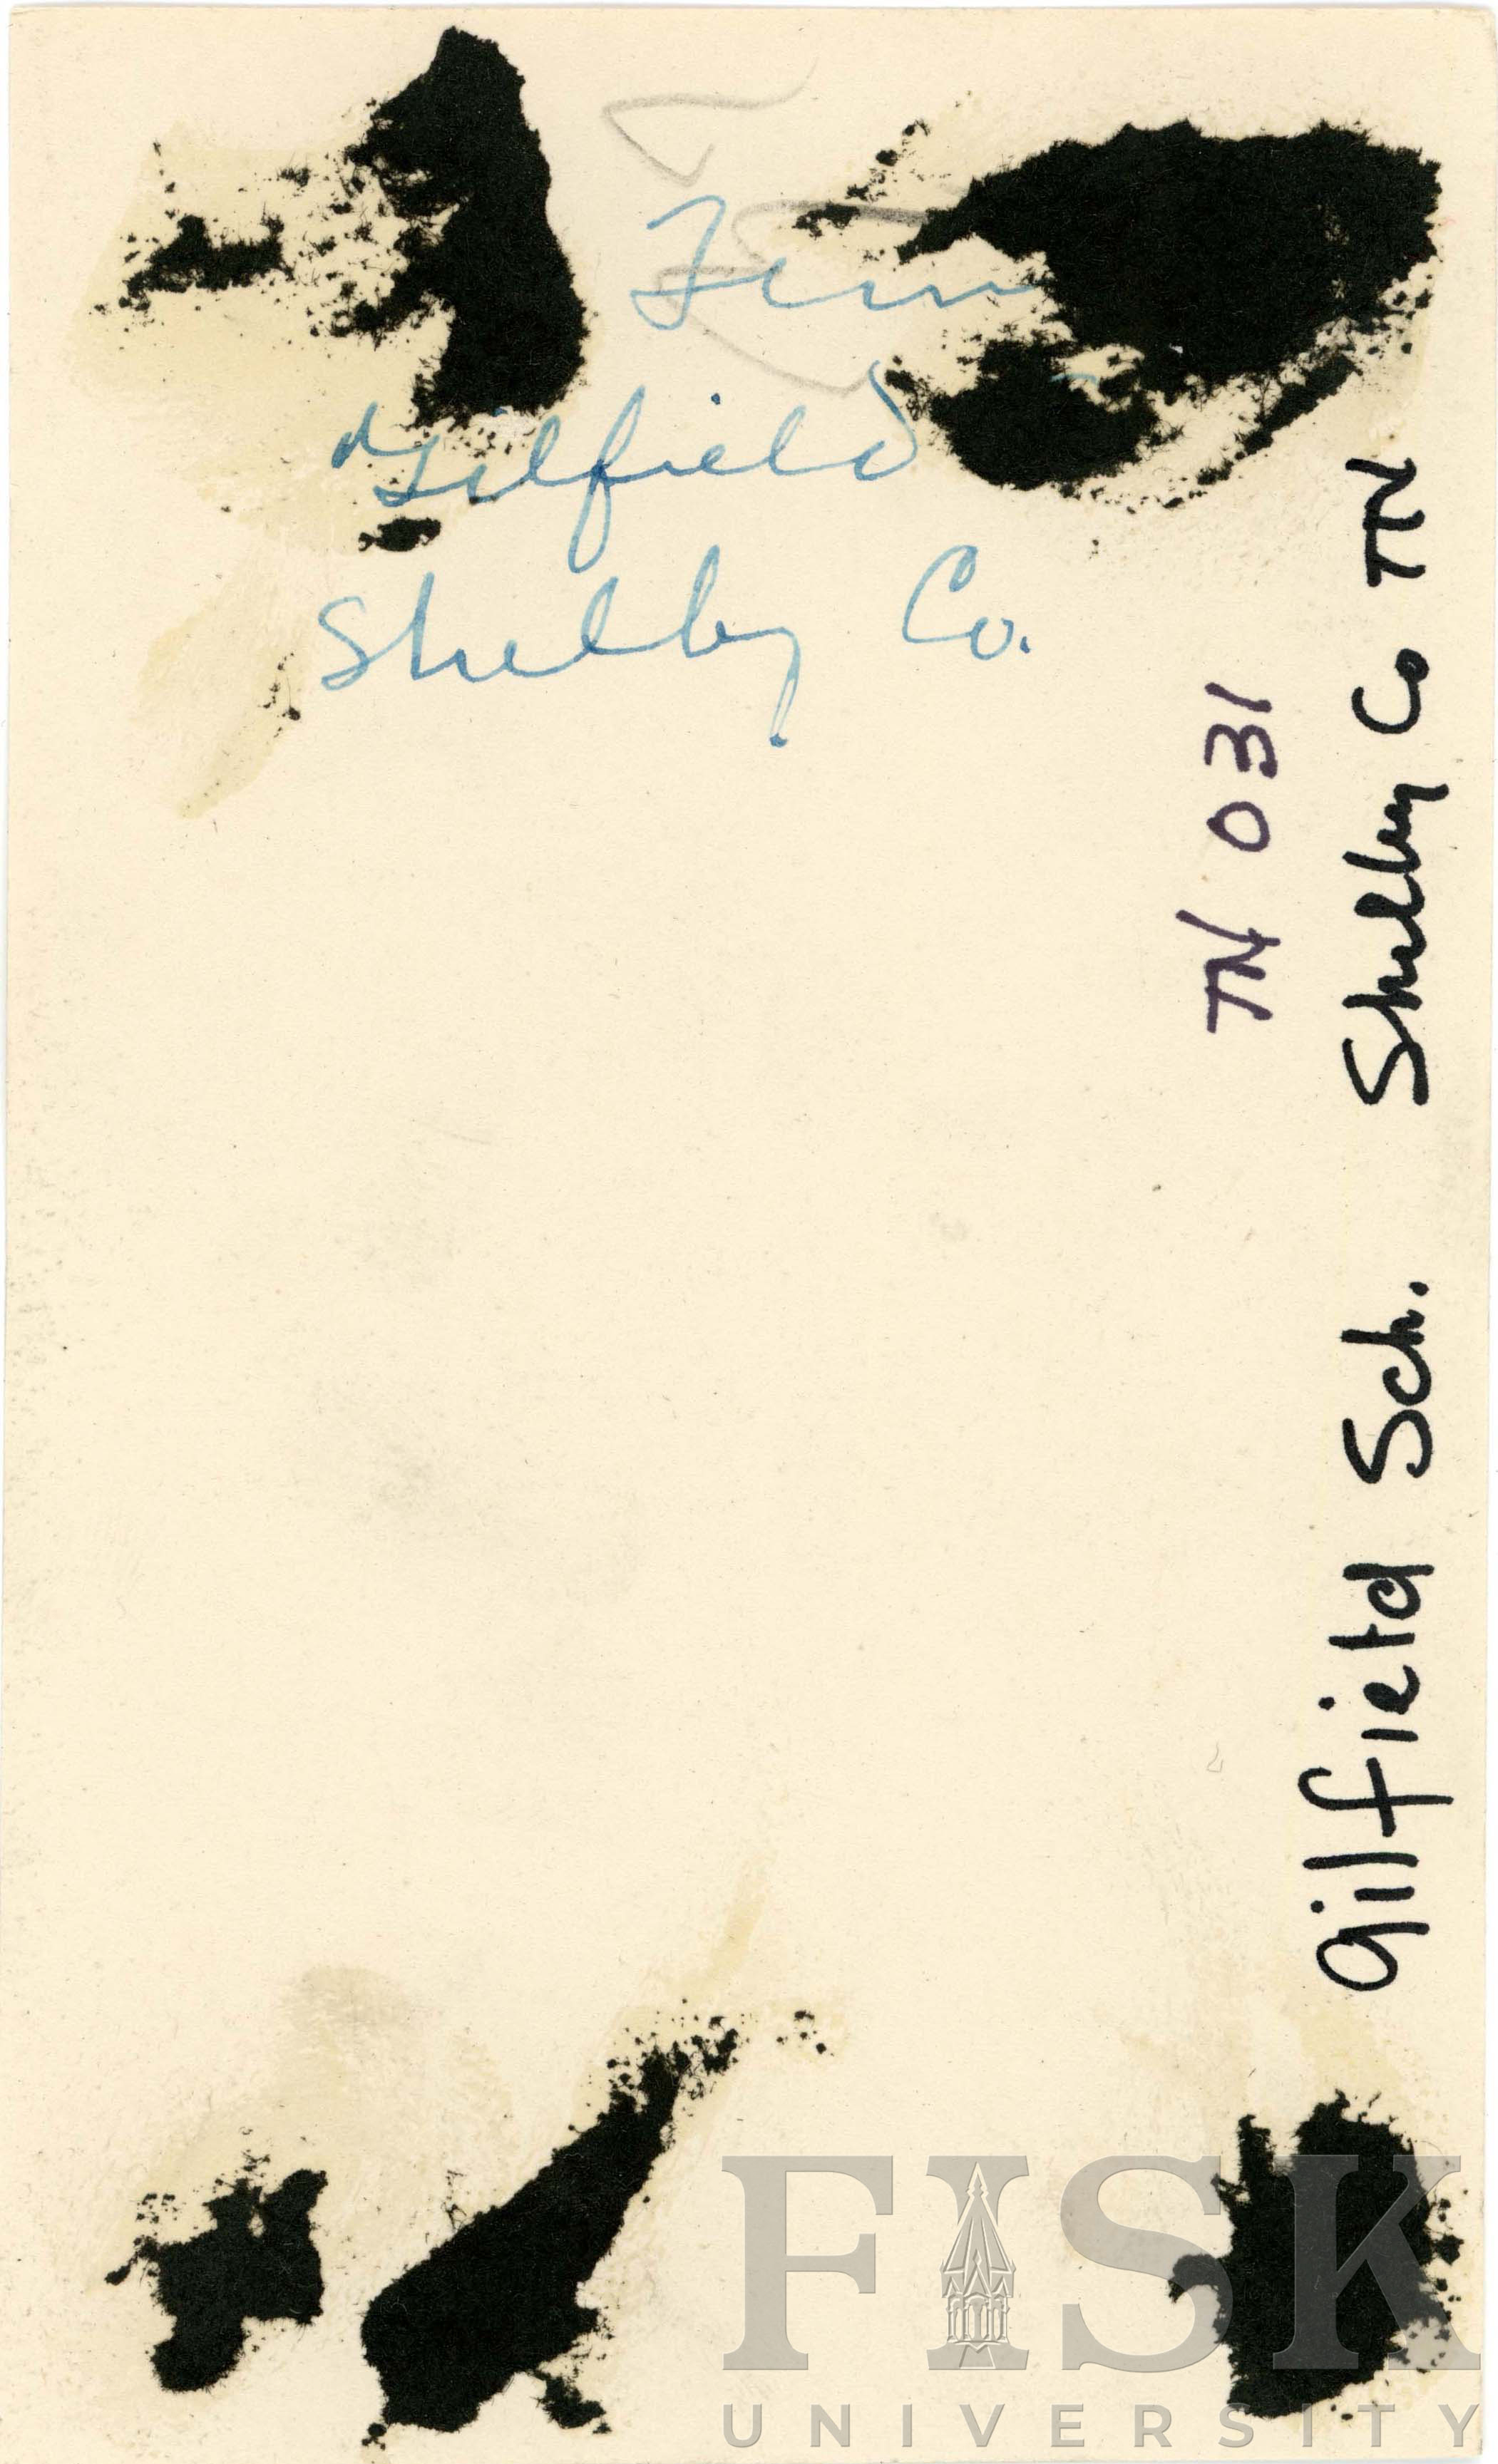 Tenn
Gilfield
Shelby Co.
TN 031
Gilfield Sch. Shelby Co TN
FISK
UNIVERSITY